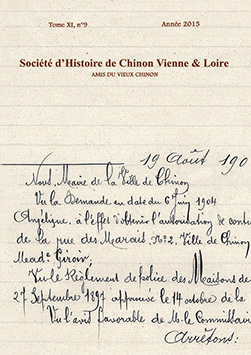 Tome XI, n°9 Année 2015
Société d'Histoire de Chinon Vienne & Loire
AMIS DU VIEUX CHINON
19 Août 190
Nous, Maire de la Ville de Chinon
Vu la Demande en date du 6 Juin 1904
Angélique, à l'effet d'obtenir l'autorisation de contin
de la rue des Marais, N°2, Ville de Chinon
Mead: Giroir,
Vu le Règlement de police des Maisons de
27 Septembre 1897 approuvé le 14 octobre de la
Vu l'avis favorable de M. le Commissair
Arrêtons: